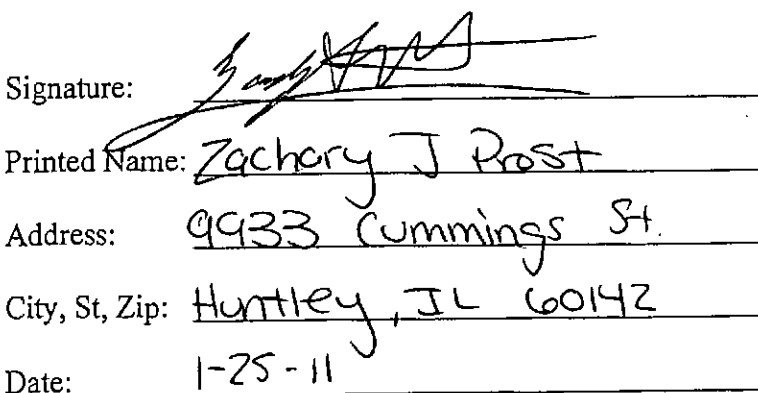 Signature:
Printed Name: Zachary J Prost
Address: 9933 Cummings St.
City, St, Zip: Huntley, IL 60142
Date: 1-25-11